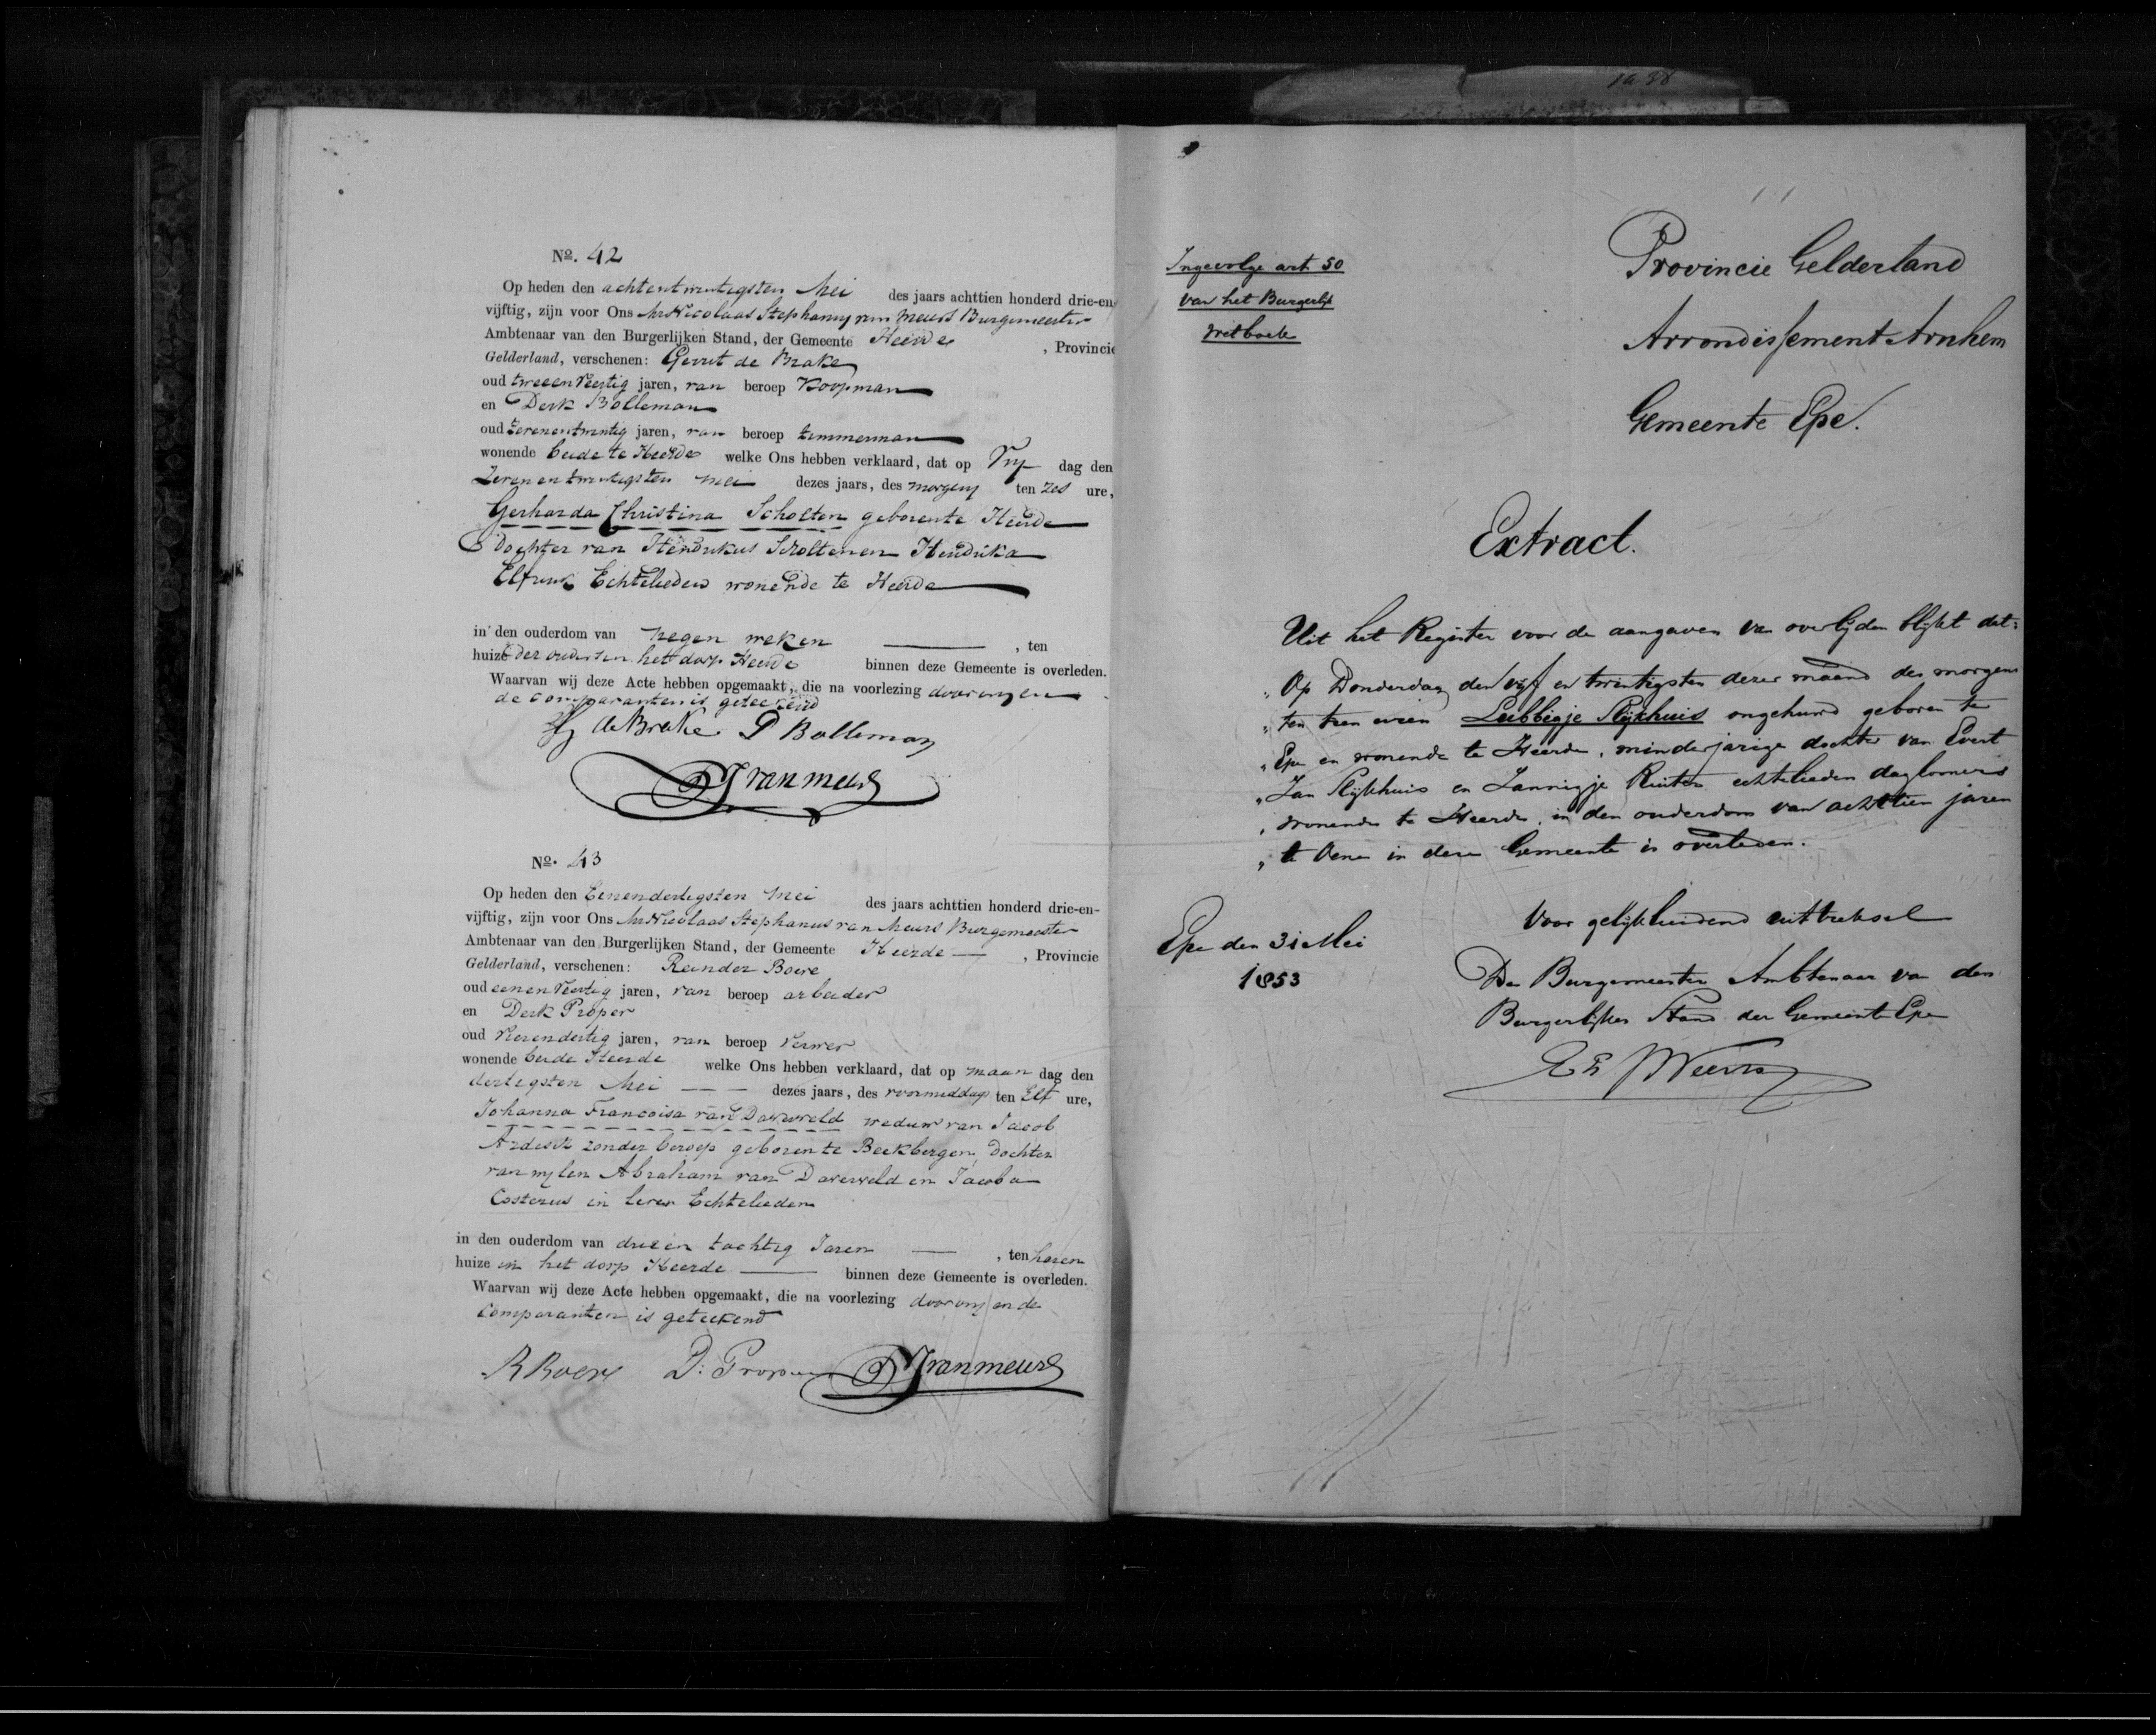 1a 38
No. 42
Op heden den achtentwintigsten Mei des jaars achttien honderd drie-en-
vijftig, zijn voor Ons Mr Nicolaas Stephanus van Meurs Burgemeester
Ambtenaar van den Burgerlijken Stand, der Gemeente Heerde , Provincie
Gelderland, verschenen: Gerrit de Brake
oud tweeenveertig jaren, van beroep Koopman
en Derk Bolleman
oud zevenentwintig jaren, van beroep timmerman
wonende beide te Heerde welke Ons hebben verklaard, dat op Vrij dag den
Zevenentwintigsten Mei dezes jaars, des morgens ten zes ure,
Gerharda Christina Scholten geboren te Heerde
Dochter van Hendrikus Scholten en Hendrika
Echtelieden wonende te Heerde
in den ouderdom van negen weken , ten
huize der ouders in het dorp Heerde binnen deze Gemeente is overleden.
Waarvan wij deze Acte hebben opgemaakt, die na voorlezing door ons en
de comparanten is geteekend
G de Brake D Bolleman
van meurs
No. 43
Op heden den Eenendertigsten Mei des jaars achttien honderd drie-en-
vijftig, zijn voor Ons Mr Nicolaas Stephanus van Meurs Burgemeester
Ambtenaar van den Burgerlijken Stand, der Gemeente Heerde , Provincie
Gelderland, verschenen: Reinder Boere
oud eenenveertig jaren, van beroep arbeider
en Derk Proper
oud vierendertig jaren, van beroep Verwer
wonende beide Heerde welke Ons hebben verklaard, dat op maan dag den
dertigsten Mei dezes jaars, des voormiddags ten Elf ure,
Johanna Francoisa van Daverveld weduw van Jacob
Ardesch zonder beroep geboren te Beekbergen, Dochter
van wylen Abraham van Daverveld en Jacoba
Costerus in leven Echtelieden
in den ouderdom van drieen tachtig Jaren , ten haren
huize in het dorp Heerde binnen deze Gemeente is overleden.
Waarvan wij deze Acte hebben opgemaakt, die na voorlezing door ons en de
Comparanten is geteekend
R Boere D: Proper van meurs
Ingevolge art. 50
van het Burgerlijk
wetboek
Provincie Gelderland
Arrondissement Arnhem
Gemeente Epe.
Extract.
Uit het Register voor de aangaven van overlijden blijkt dat:
„ Op Donderdag den vijf en twintigsten dezer maand des morgens
„ ten tien uren Lubbigje Slijkhuis ongehuwd geboren te
„ Epe en wonende te Heerde, minderjarige dochter van Evert
„ Jan Slijkhuis en Jannigje echtelieden daglooners
„ wonende te Heerde, in den ouderdom van achttien jaren
„ te Oene in deze Gemeente is overleden.
Voor gelijkluidend uittreksel
Epe den 31 Mei
1853
De Burgemeester Ambtenaar van den
Burgerlijken Stand der Gemeente Epe
Weerts